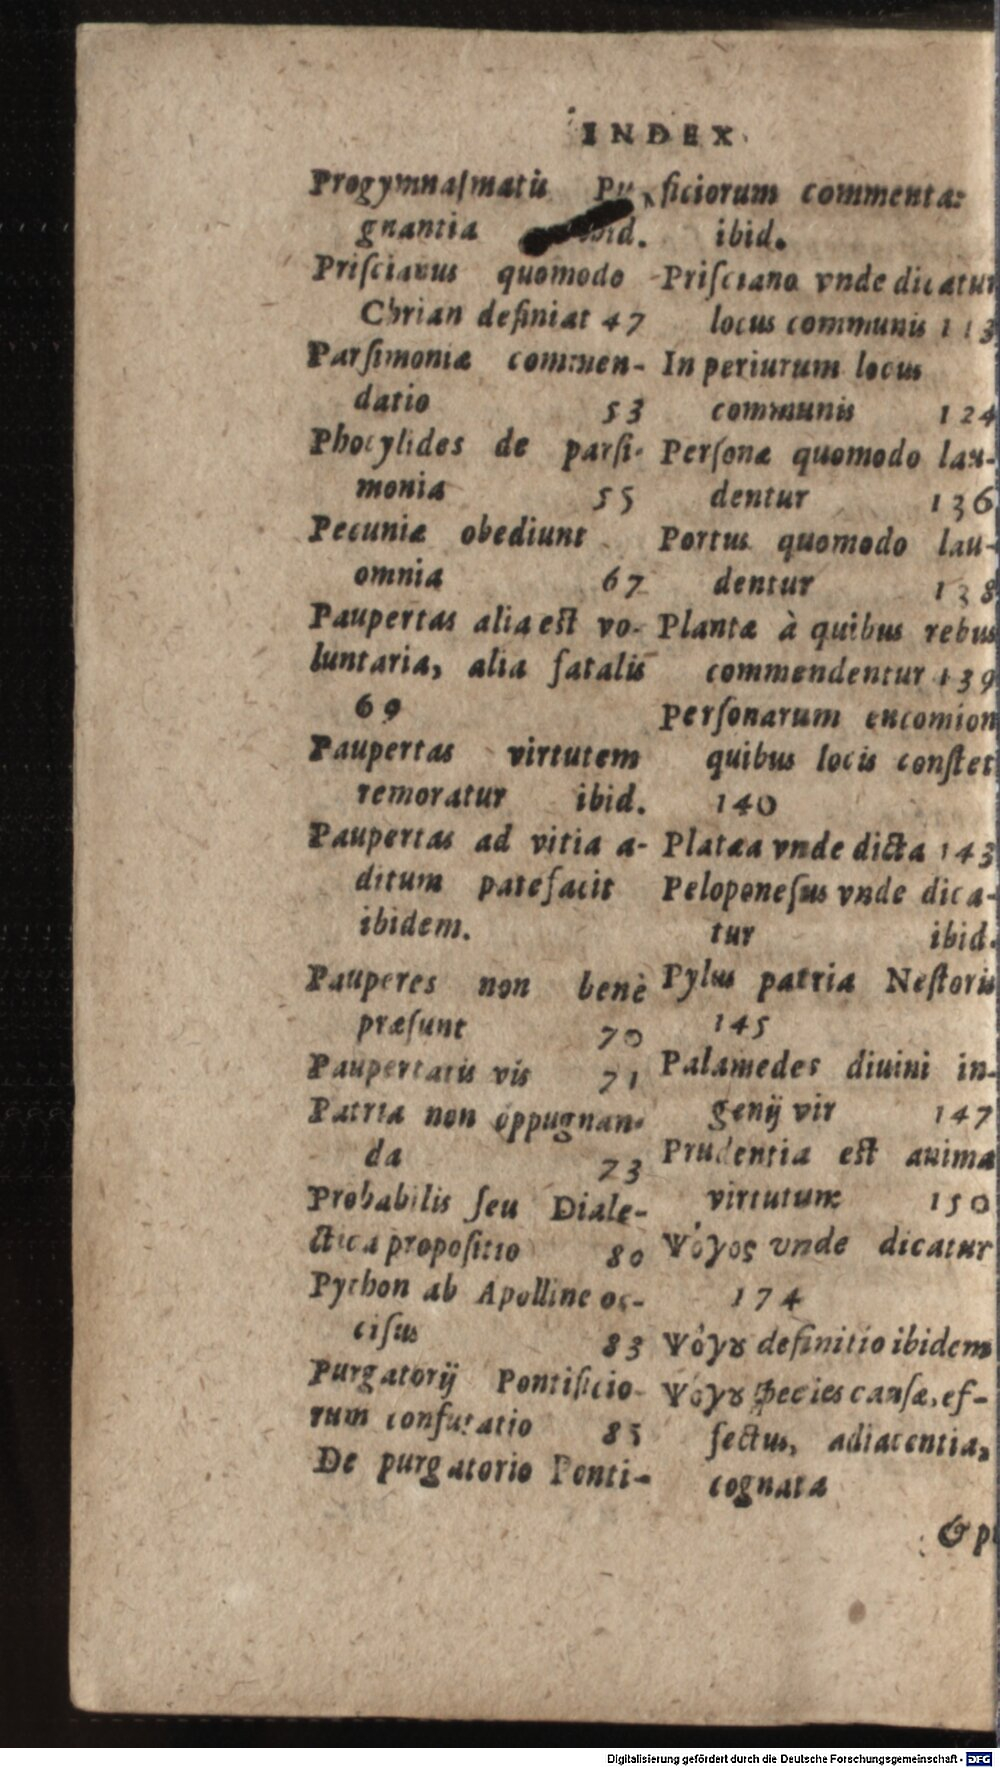 INDEX
Progymnaſmatis Pu
gnantia ibid.
Priſcianus quomodo
Chrian definiat 47
Parſimoniæ commen-
datio 53
Phocylides de parſi-
monia 55
Pecuniæ obediunt
omnia 67
Paupertas alia eſt vo-
luntaria, alia fatalis
69
Paupertas virtutem
remoratur ibid.
Paupertas ad vitia a-
ditum patefacit
ibidem.
Pauperes non benè
præſunt 70
Paupertatis vis 71
Patria non oppugnan-
da 73
Probabilis ſeu Diale-
ctica propoſitio 80
Python ab Apolline oc-
ciſus 83
Purgatorij Pontificio-
rum confutatio 85
De purgatorio Ponti-
ficiorum commenta:
ibid.
Priſciano vnde dicatur
locus communis 113
In periurum locus
communis 124
Perſonæ quomodo lau-
dentur 136
Portus quomodo lau-
dentur 138
Plantæ à quibus rebus
commendentur 139
Perſonarum encomion
quibus locis conſtet
140
Platæa vnde dicta 143
Peloponeſus vnde dica-
tur ibid.
Pylus patria Neſtoris
145
Palamedes diuini in-
genij vir 147
Prudentia eſt anima
virtutum 150
Ψόγος vnde dicatur
174
Ψόγȣ definitio ibidem
Ψόγȣ ſpecies cauſæ, ef-
fectus, adiacentia,
cognata
& p